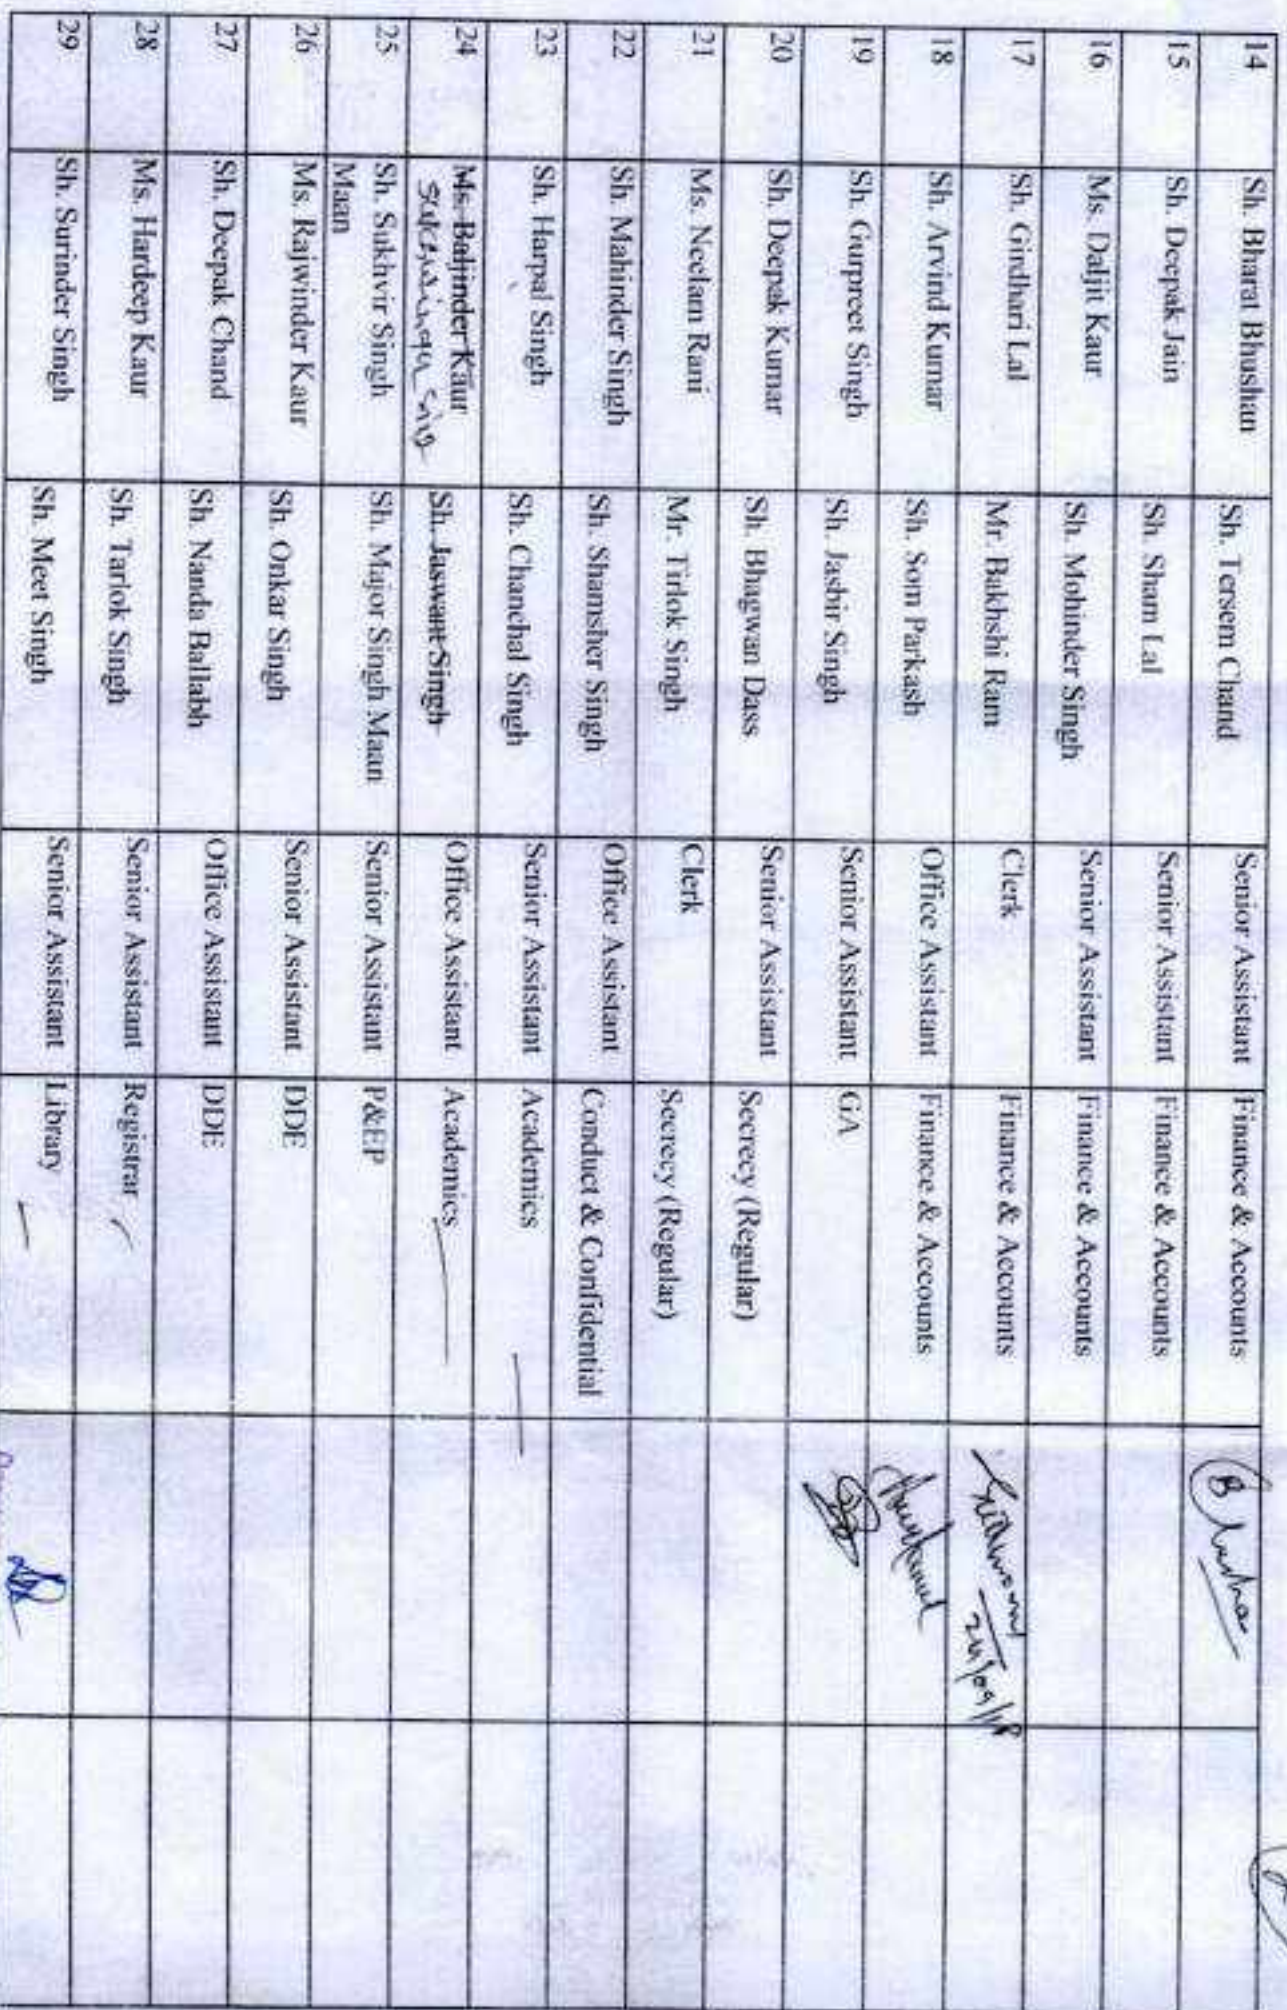 14 Sh. Bharat Bhushan Sh. Tersem Chand Senior Assistant Finance & Accounts
15 Sh. Deepak Jain Sh. Sham Lal Senior Assistant Finance & Accounts
16 Ms. Daljit Kaur Sh. Mohinder Singh Senior Assistant Finance & Accounts
17 Sh. Girdhari Lal Mr. Bakhshi Ram Clerk Finance & Accounts
18 Sh. Arvind Kumar Sh. Som Parkash Office Assistant Finance & Accounts
19 Sh. Gurpreet Singh Sh. Jasbir Singh Senior Assistant GA
20 Sh. Deepak Kumar Sh. Bhagwan Dass Senior Assistant Secrecy (Regular)
21 Ms. Neelam Rani Mr. Tirlok Singh Clerk Secrecy (Regular)
22 Sh. Mahinder Singh Sh. Shamsher Singh Office Assistant Conduct & Confidential
23 Sh. Harpal Singh Sh. Chanchal Singh Senior Assistant Academics
24 Ms. Baljinder Kaur Sh. Jaswant Singh Office Assistant Academics
25 Sh. Sukhvir Singh Sh. Major Singh Maan Senior Assistant P&EP
Maan
26 Ms. Rajwinder Kaur Sh. Onkar Singh Senior Assistant DDE
27 Sh. Deepak Chand Sh. Nanda Ballabh Office Assistant DDE
28 Ms. Hardeep Kaur Sh. Tarlok Singh Senior Assistant Registrar
29 Sh. Surinder Singh Sh. Meet Singh Senior Assistant Library